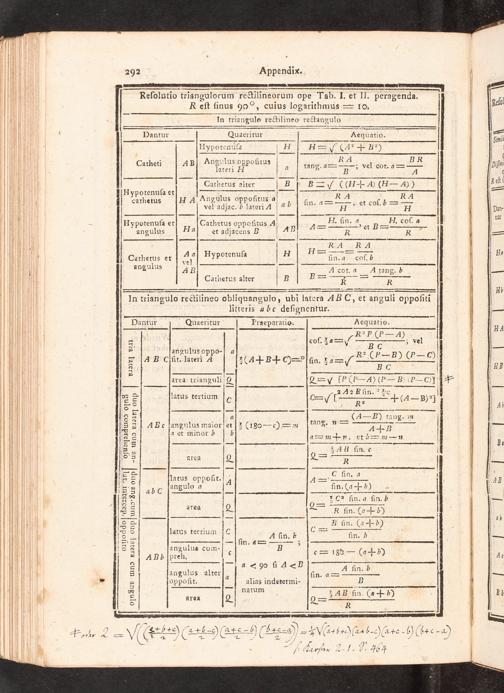 292 Appendix.
Resolutio triangulorum rectilineorum ope Tab. I. et II. peragenda.
R est sinus 90°, cuius logarithmus = 10.
In triangulo rectilineo rectangulo
Dantur Quaeritur Aequatio.
Catheti A B Hypotenusa H H = √ (A² + B²)
Angulus oppositus lateri H a tang. a = R A / B ; vel cot. a = B R / A
Hypotenusa et cathetus H A Cathetus alter B B = √ ((H + A) (H — A))
Angulus oppositus a vel adjac. b lateri A a b sin. a = R A / H, et cos. b = R A / H
Hypotenusa et angulus H a Cathetus oppositus A et adjacens B A B A = H. sin. a / R, et B = H. cos. a / R
Cathetus et angulus A a vel A B Hypotenusa H H = R A / sin. a = R A / cos. b
Cathetus alter B B = A cot. a / R = A tang. b / R
In triangulo rectilineo obliquangulo, ubi latera A B C, et anguli oppositi
litteris a b c designentur.
Dantur Quaeritur Praeparatio. Aequatio.
tria latera A B C angulus oppositi. lateri A a ½ (A + B + C) = P cos. ½ a = √ R² P (P — A) / B C ; vel
sin. ½ a = √ R² (P — B) (P — C) / B C
area trianguli Q Q = √ [P (P—A) (P—B) (P—C)] #
duo latera cum angulo comprehenso A B c latus tertium C
angulus maior a et minor b a et b ½ (180 — c) = m tang. n = (A — B) tang. m / A + B
a = m + n. et b = m — n
area Q Q = ½ A B sin. c / R
duo ang. cum lat. intercep. a b C latus opposit. angulo a A A = C sin. a / sin. (a + b)
area Q Q = ½ C² sin. a sin. b / R sin. (a + b)
duo latera cum angulo opposito A B b latus tertium C sin. a = A sin. b / B ; C = B sin. (a + b) / sin. b
angulus compreh. c c = 180 — (a + b)
angulus alter opposit. a a < 90 si A < B sin. a = A sin. b / B
area Q alias indeterminatum Q = ½ A B sin. (a + b) / R